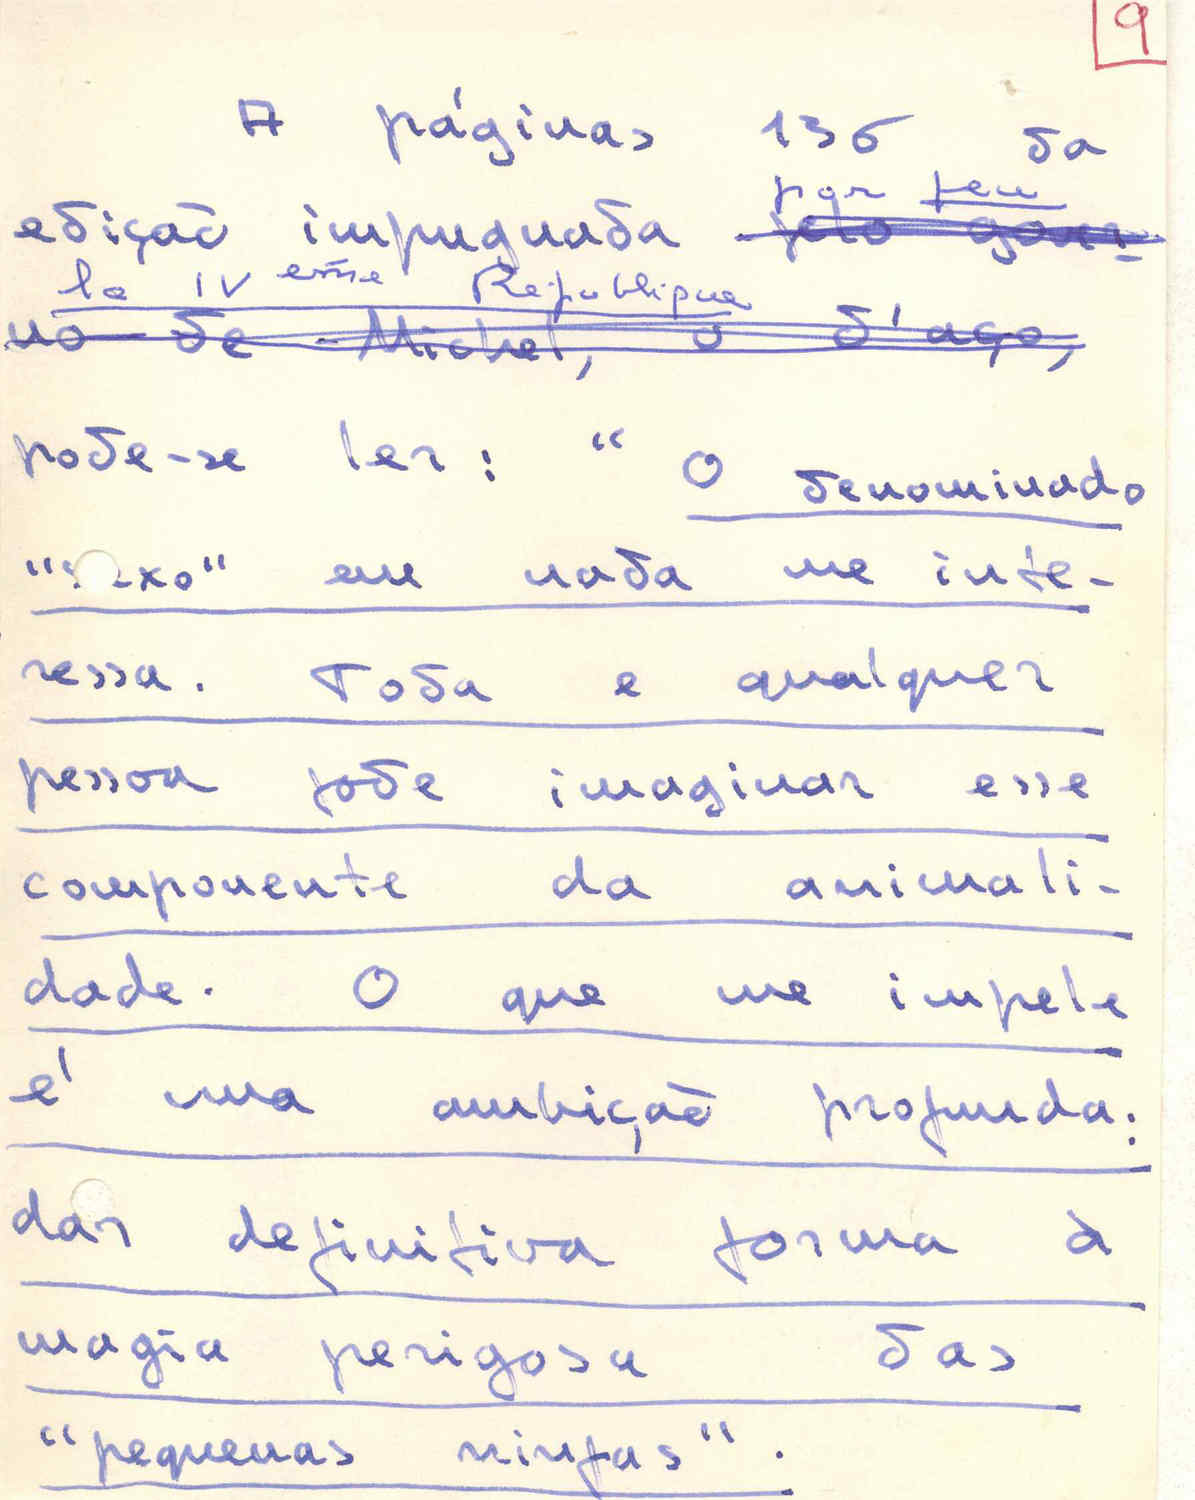 9
A páginas 136 da
por feu
edição impugnada pelo gover-
la IV ème République
no de Michel, o d'aço,
pode-se ler: "O denominado
"sexo" em nada me inte-
ressa. Toda e qualquer
pessoa pode imaginar esse
componente da animali-
dade. O que me impele
é uma ambição profunda:
dar definitiva forma à
magia perigosa das
"pequenas ninfas".